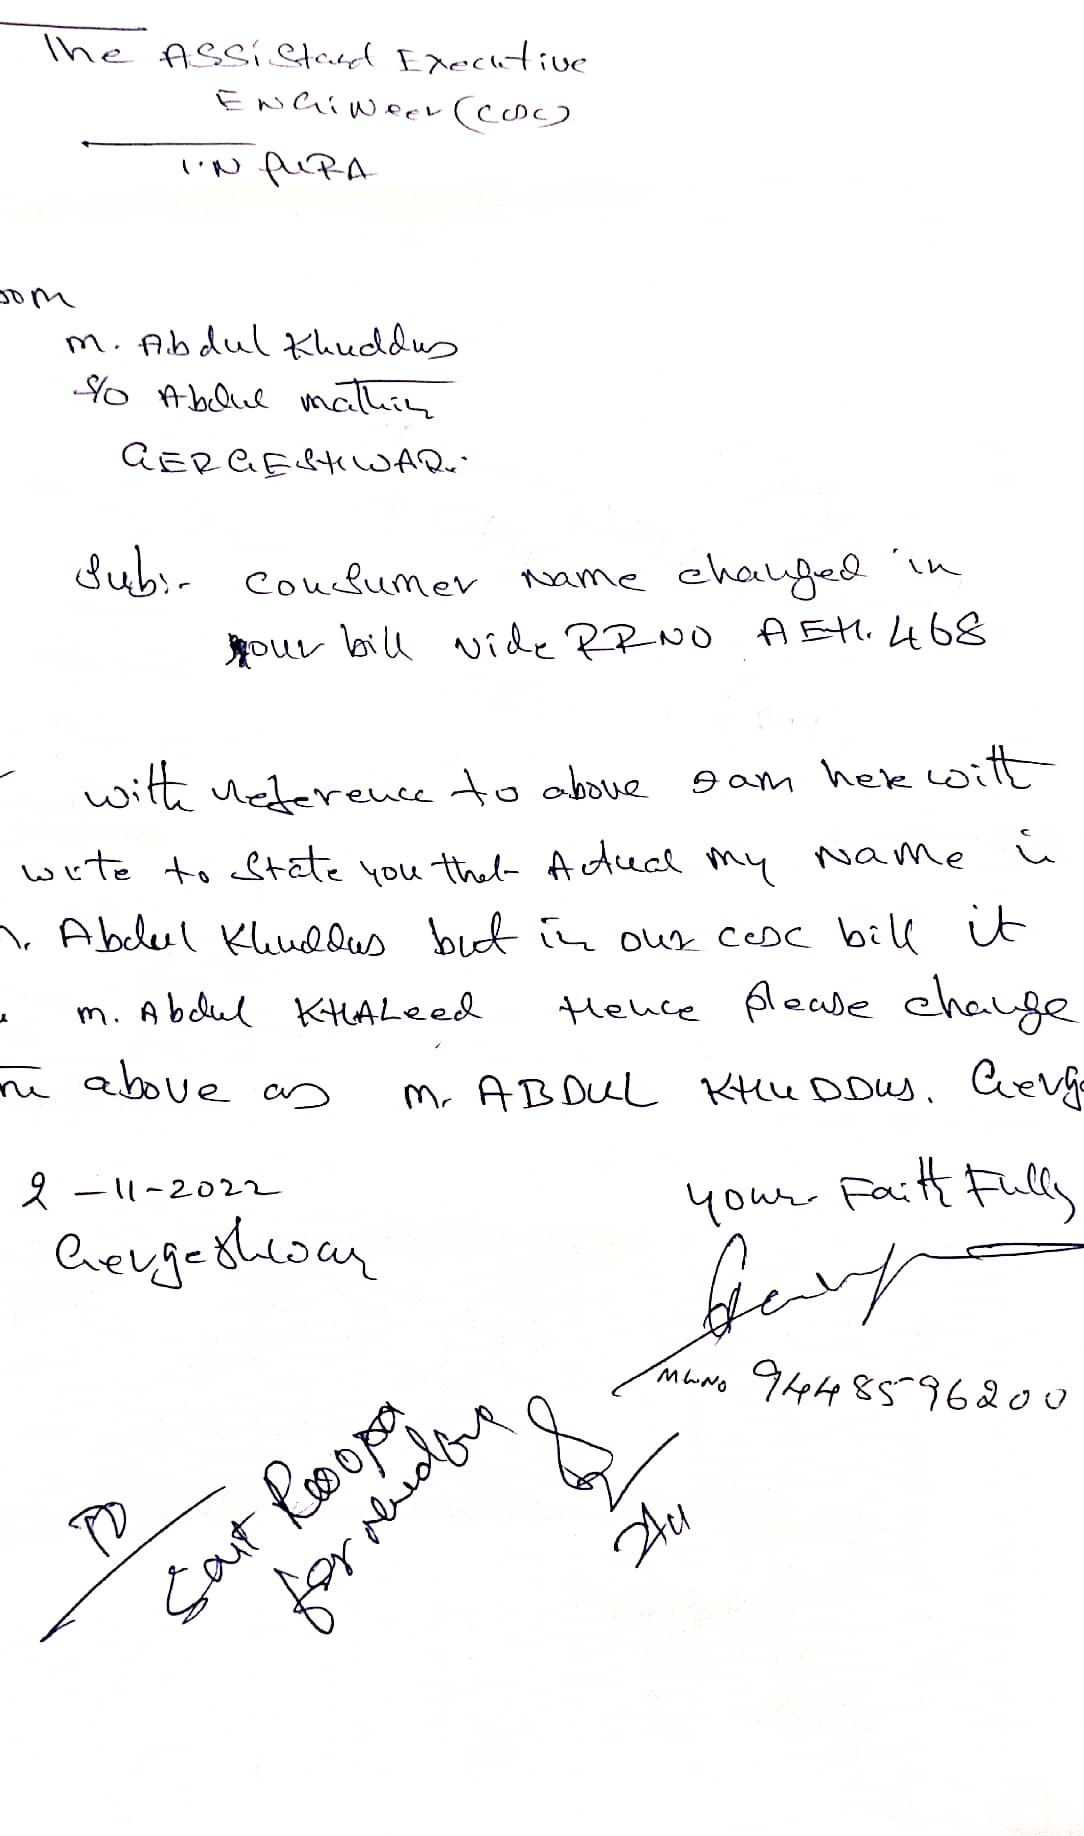 The ASSistard Executive
ENGiNeer (CESC)
T.N PURA
oom
m. Abdul Khuddus
S/o Abdul mathin
GERGESHWAR.
Sub:- Consumer Name changed in
your bill vide RRNO AEH. 468
with reference to above I am here with
write to State you that Actual my Name is
Abdul Khuddus but in our CESC bill it
m. Abdul KHALeed Hence please change
above as M. ABDUL KHUDDUS. Gerge
2-11-2022
Gergeshwar
your FaithFully
9448596200
TO
Roopa
for